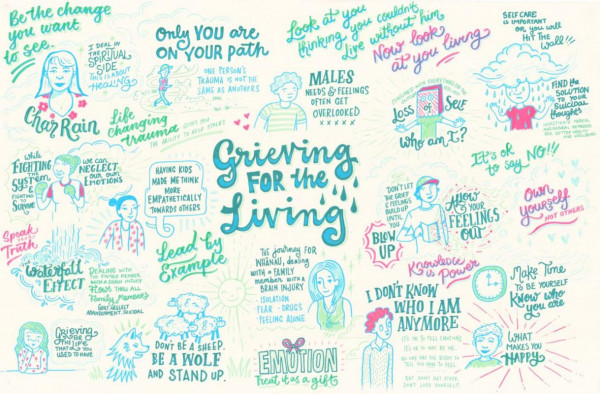 Be the change
you want
to see.
I DEAL IN
THE
SPIRITUAL
SIDE
THIS IS ABOUT
HEALING
Char Rain
ONLY YOU ARE
ON YOUR PATH
ONE PERSON'S
TRAUMA IS NOT THE
SAME AS ANOTHERS
Life
changing
trauma GIVES YOU
THE ABILITY TO HELP OTHERS
MALES
NEEDS & FEELINGS
OFTEN GET
OVERLOOKED
XXXXX
Look at you
thinking you couldn't
live without him
Now look
at you living
Loss of Self
Who am I?
SELF CARE
IS IMPORTANT
OR YOU WILL
HIT THE
WALL!!
FIND THE
SOLUTION
TO YOUR
Suicidal
thoughts
WHILE
FIGHTING
THE
SYSTEM
FIGHTING
TO SURVIVE
WE CAN
NEGLECT
OUR OWN
EMOTIONS
HAVING KIDS
MADE ME THINK
MORE
EMPATHETICALLY
TOWARDS OTHERS
Grieving
FOR THE
Living
It's ok
to say NO!!!
DON'T LET
THE GRIEF
& FEELINGS
BUILD UP
UNTIL
YOU
BLOW
UP
Allow
YOUR
FEELINGS
OUT
Own
yourself
NOT OTHERS
Knowledge
is Power
Speak
Truth
Waterfall
EFFECT
DEALING WITH
THE FAMILY MEMBER
WITH A BRAIN INJURY
FLOWS THRU ALL
Family Members
GRIEF, NEGLECT
ABANDONMENT, SUICIDAL
Lead by
Example
The journey FOR
WHĀNAU, dealing
WITH A FAMILY
MEMBER WITH A
BRAIN INJURY
ISOLATION
FEAR - DRUGS
FEELING ALONE
Grieving
FOR
THE LIFE
THAT
YOU
USED TO HAVE
DON'T BE A SHEEP.
BE A WOLF
AND STAND UP.
EMOTION
Treat it as a gift
I DON'T KNOW
WHO I AM
ANYMORE
IT'S OK TO FEEL EMOTIONS
IT'S OK TO
Make Time
TO BE YOURSELF
Know who
you are
WHAT
MAKES YOU
HAPPY